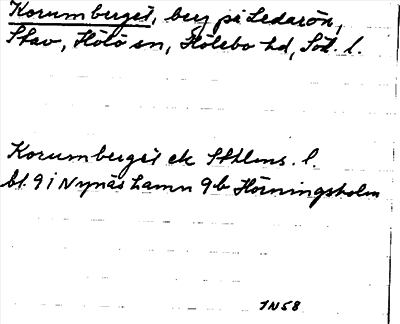 Korumberget, berg på Ledarön,
Stav, Hölö sn, Hölebo hd, Söd. l.
Korumberget ek Sthlms. l.
bl. 9 i Nynäshamn 9 b Hörningsholm
1N58